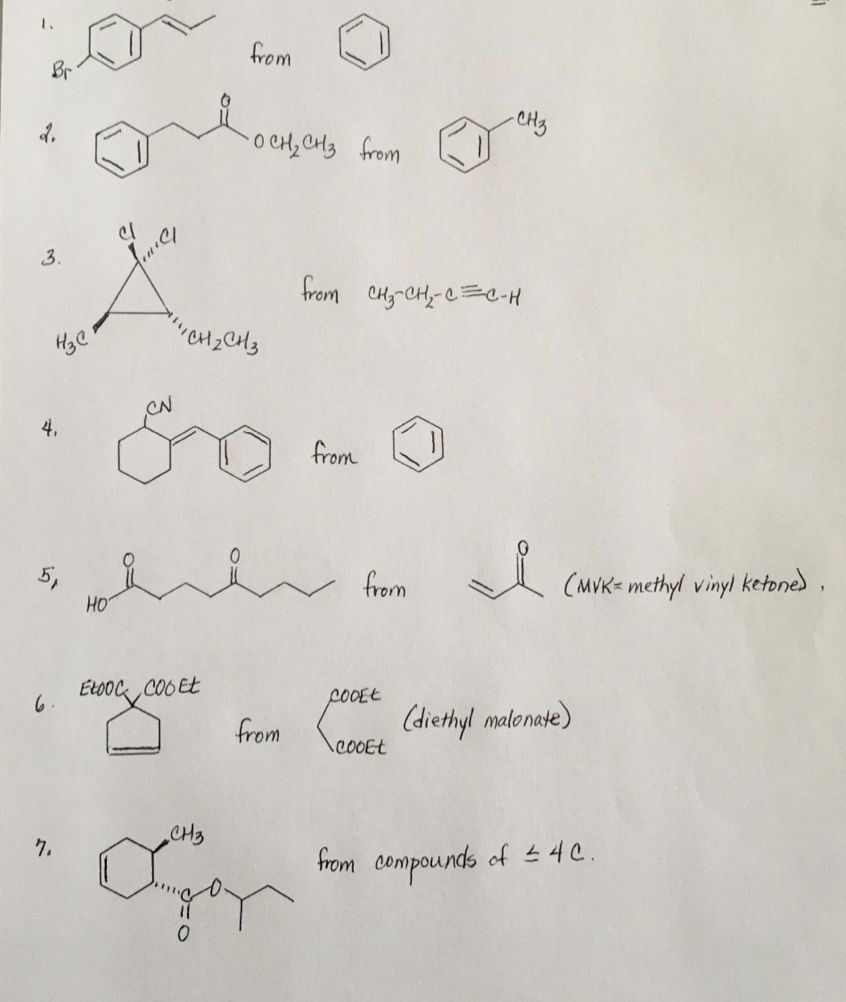 1. Br from
2. O OCH2CH3 from CH3
3. Cl Cl H3C CH2CH3 from CH3-CH2-C≡C-H
4. CN from
5, HO O O from O (MVK= methyl vinyl ketone),
6. EtOOC COOEt from COOEt COOEt (diethyl malonate)
7. CH3 C O O from compounds of ≤ 4 C.